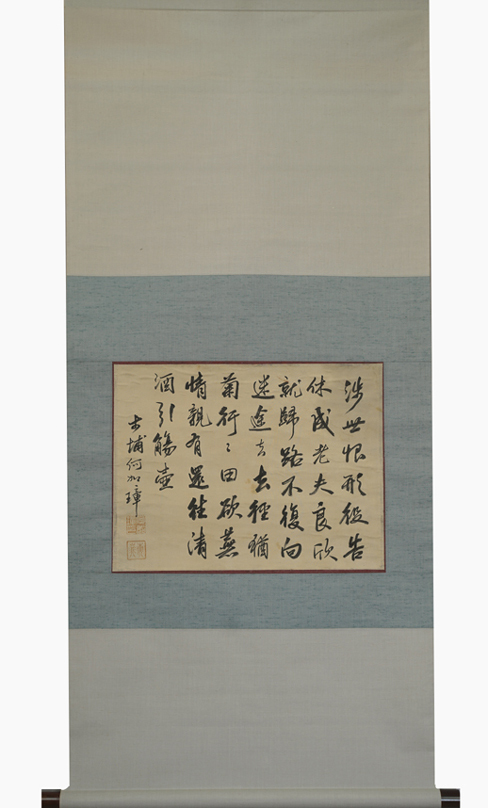 涉世恨形役告
休成老夫良欣
就歸路不復向
迷途去去徑猶
菊行〻田欲蕪
情親有還往清
酒引觴壺
大埔何如璋